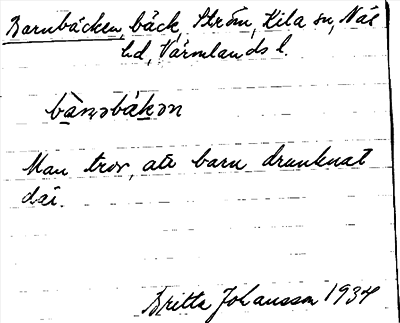 Barnbäcken, bäck, Ström, Kila sn, Näs
hd, Värmlands l.
bàn̩ɔbäkən
Man tror, att barn drunknat
där.
Britta Johansson 1934